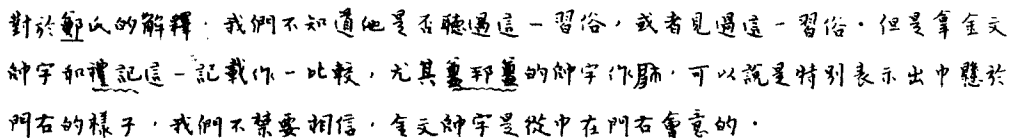 對於鄭氏的解釋，我們不知道他是否聽過這一習俗，或者見過這一習俗。但是拿金文
帥字和禮記這一記載作一比較，尤其的帥字作，可以說是特別表示出巾懸於
門右的樣子，我們不禁要相信，金文帥字是從巾在門右會意的。